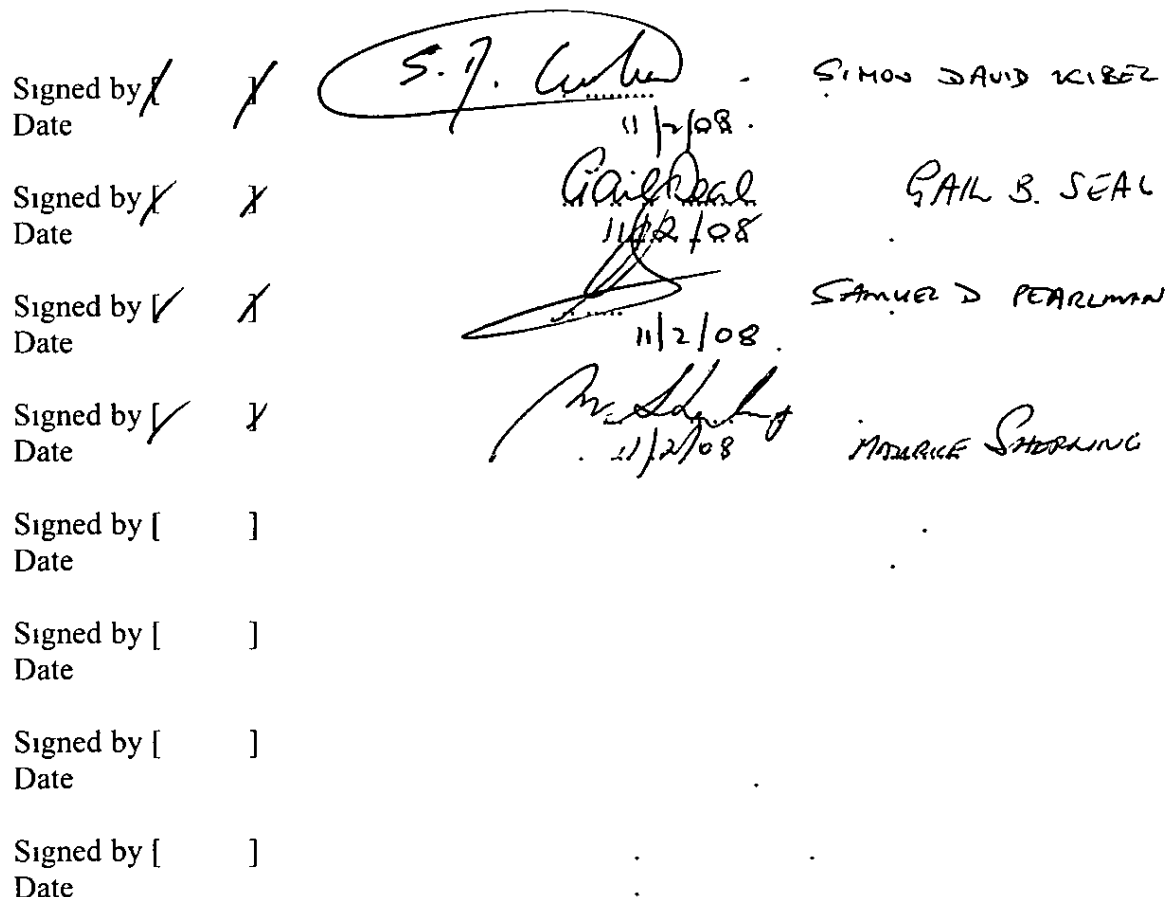 Signed by [ ] S. D. SIMON DAVID KIBEL
Date 11/2/08.
Signed by [ ] Gail Seal GAIL B. SEAL
Date 11/2/08
Signed by [ ] SAMUEL D PEARLMAN
Date 11/2/08.
Signed by [ ] M. MAURICE
Date 11/2/08
Signed by [ ]
Date
Signed by [ ]
Date
Signed by [ ]
Date
Signed by [ ]
Date